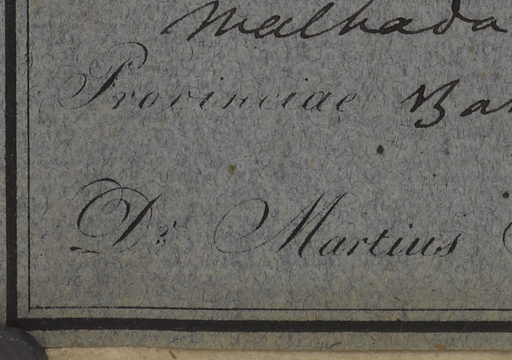 Malhada
Provinciae
Dr. Martius